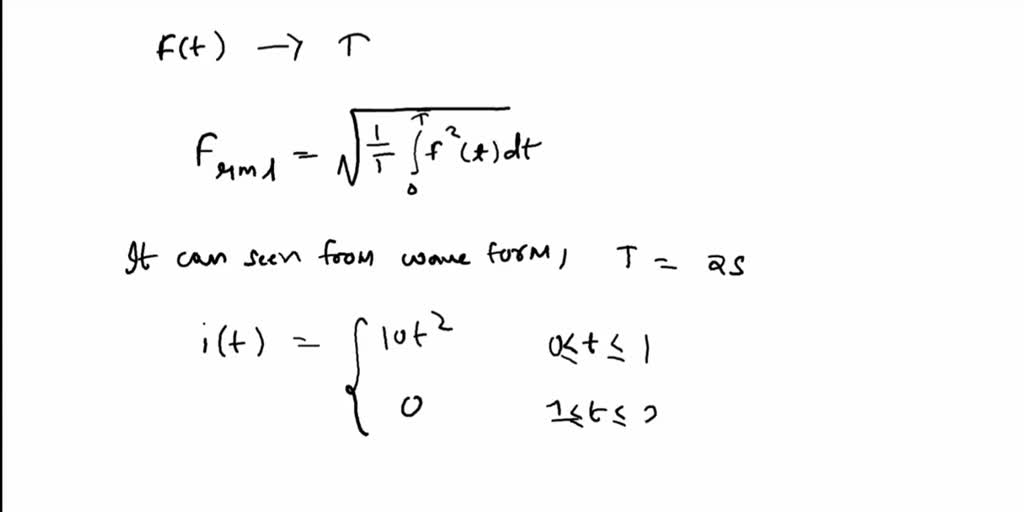 F(t) → T
F_rms = √(1/T ∫₀ᵀ f²(t) dt)
It can seen from wave form, T = 2s
i(t) = { 10t²   0≤t≤1
0   1≤t≤2